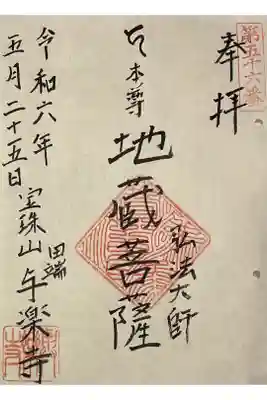 第五十六番
奉拝
弘法大師
ご本尊
地蔵菩薩
令和六年
五月二十五日
宝珠山
田端
与楽寺